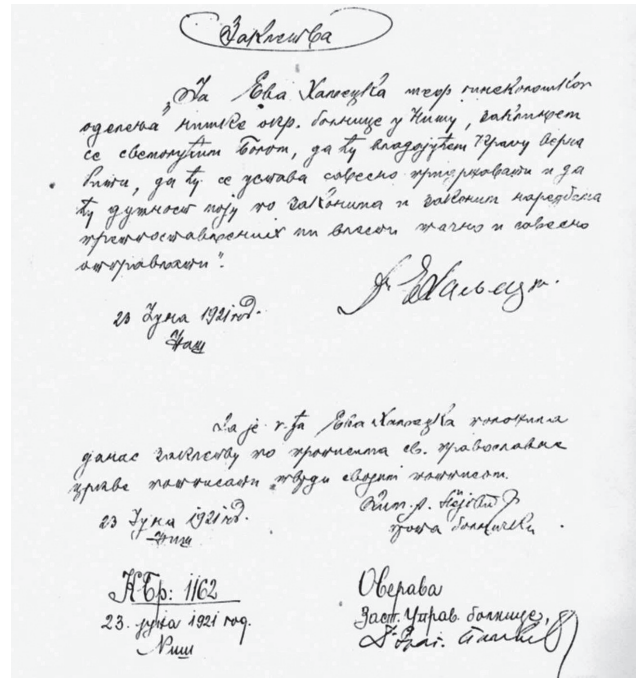 Заклетва
„Ја Ева Халецка шеф гинеколошког
оделења нишке окр. болнице у Нишу, заклињем
се свемогућим Богом, да ћу владајућем Краљу верна
бити, да ћу се устава савесно придржавати и да
ћу дужност моју по законима и законим наредбама
претпостављених ми власти тачно и савесно
отправљати“.
23 Јуна 1921 год.
Ниш
Др Е Халецка.
Да је г-ђа Ева Халецка положила
данас заклетву по прописима св. православне
цркве потписати тврди својим потписом.
23 Јуна 1921 год.
Ниш
болнички.
К Бр: 1162
23. јуна 1921 год.
Ниш
Оверава
Заст. Управ. болнице,